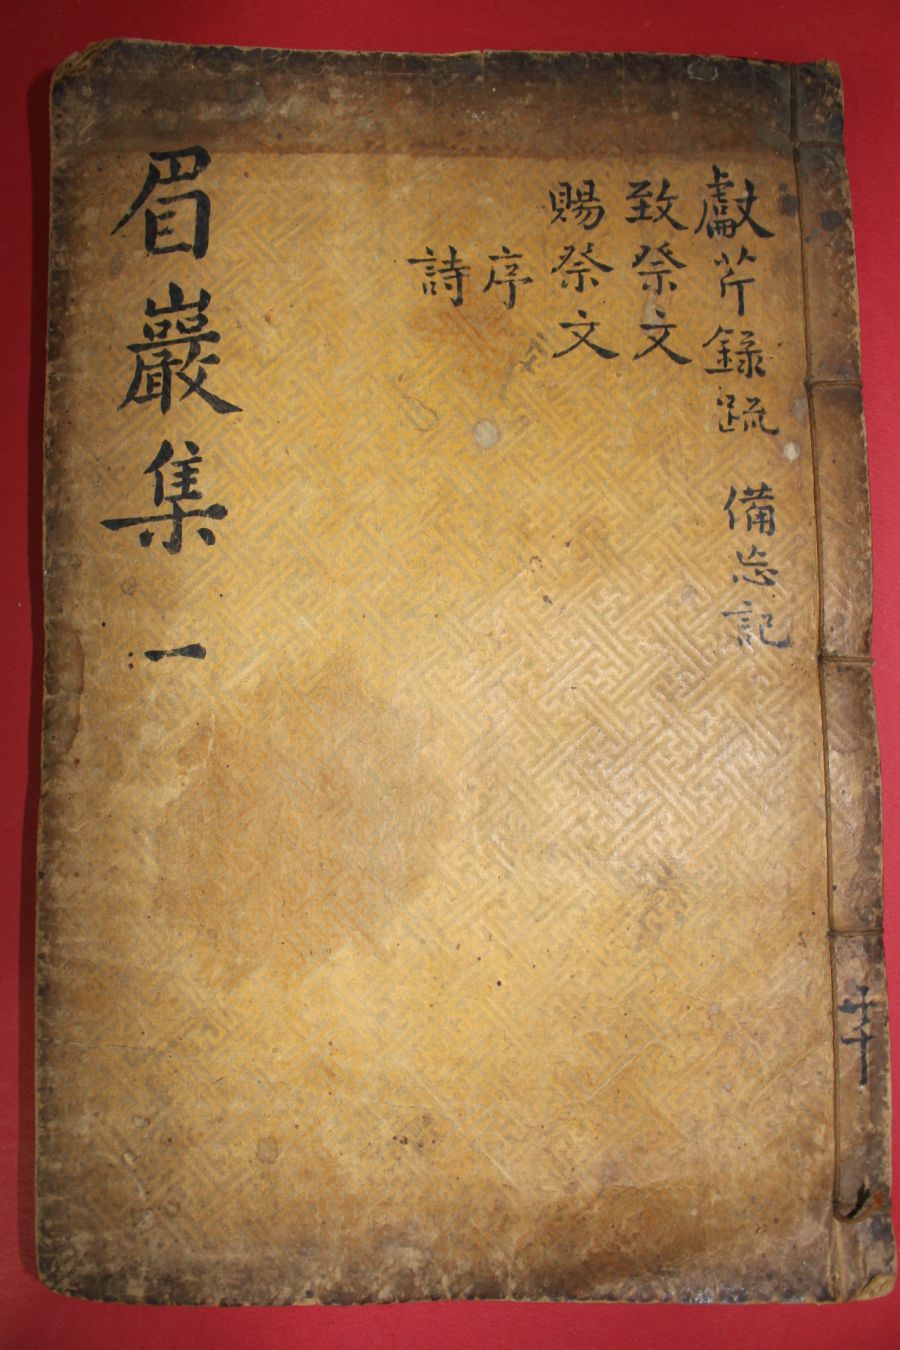 獻芹錄疏 備忘記
致祭文
賜祭文
序
詩
眉巖集 一